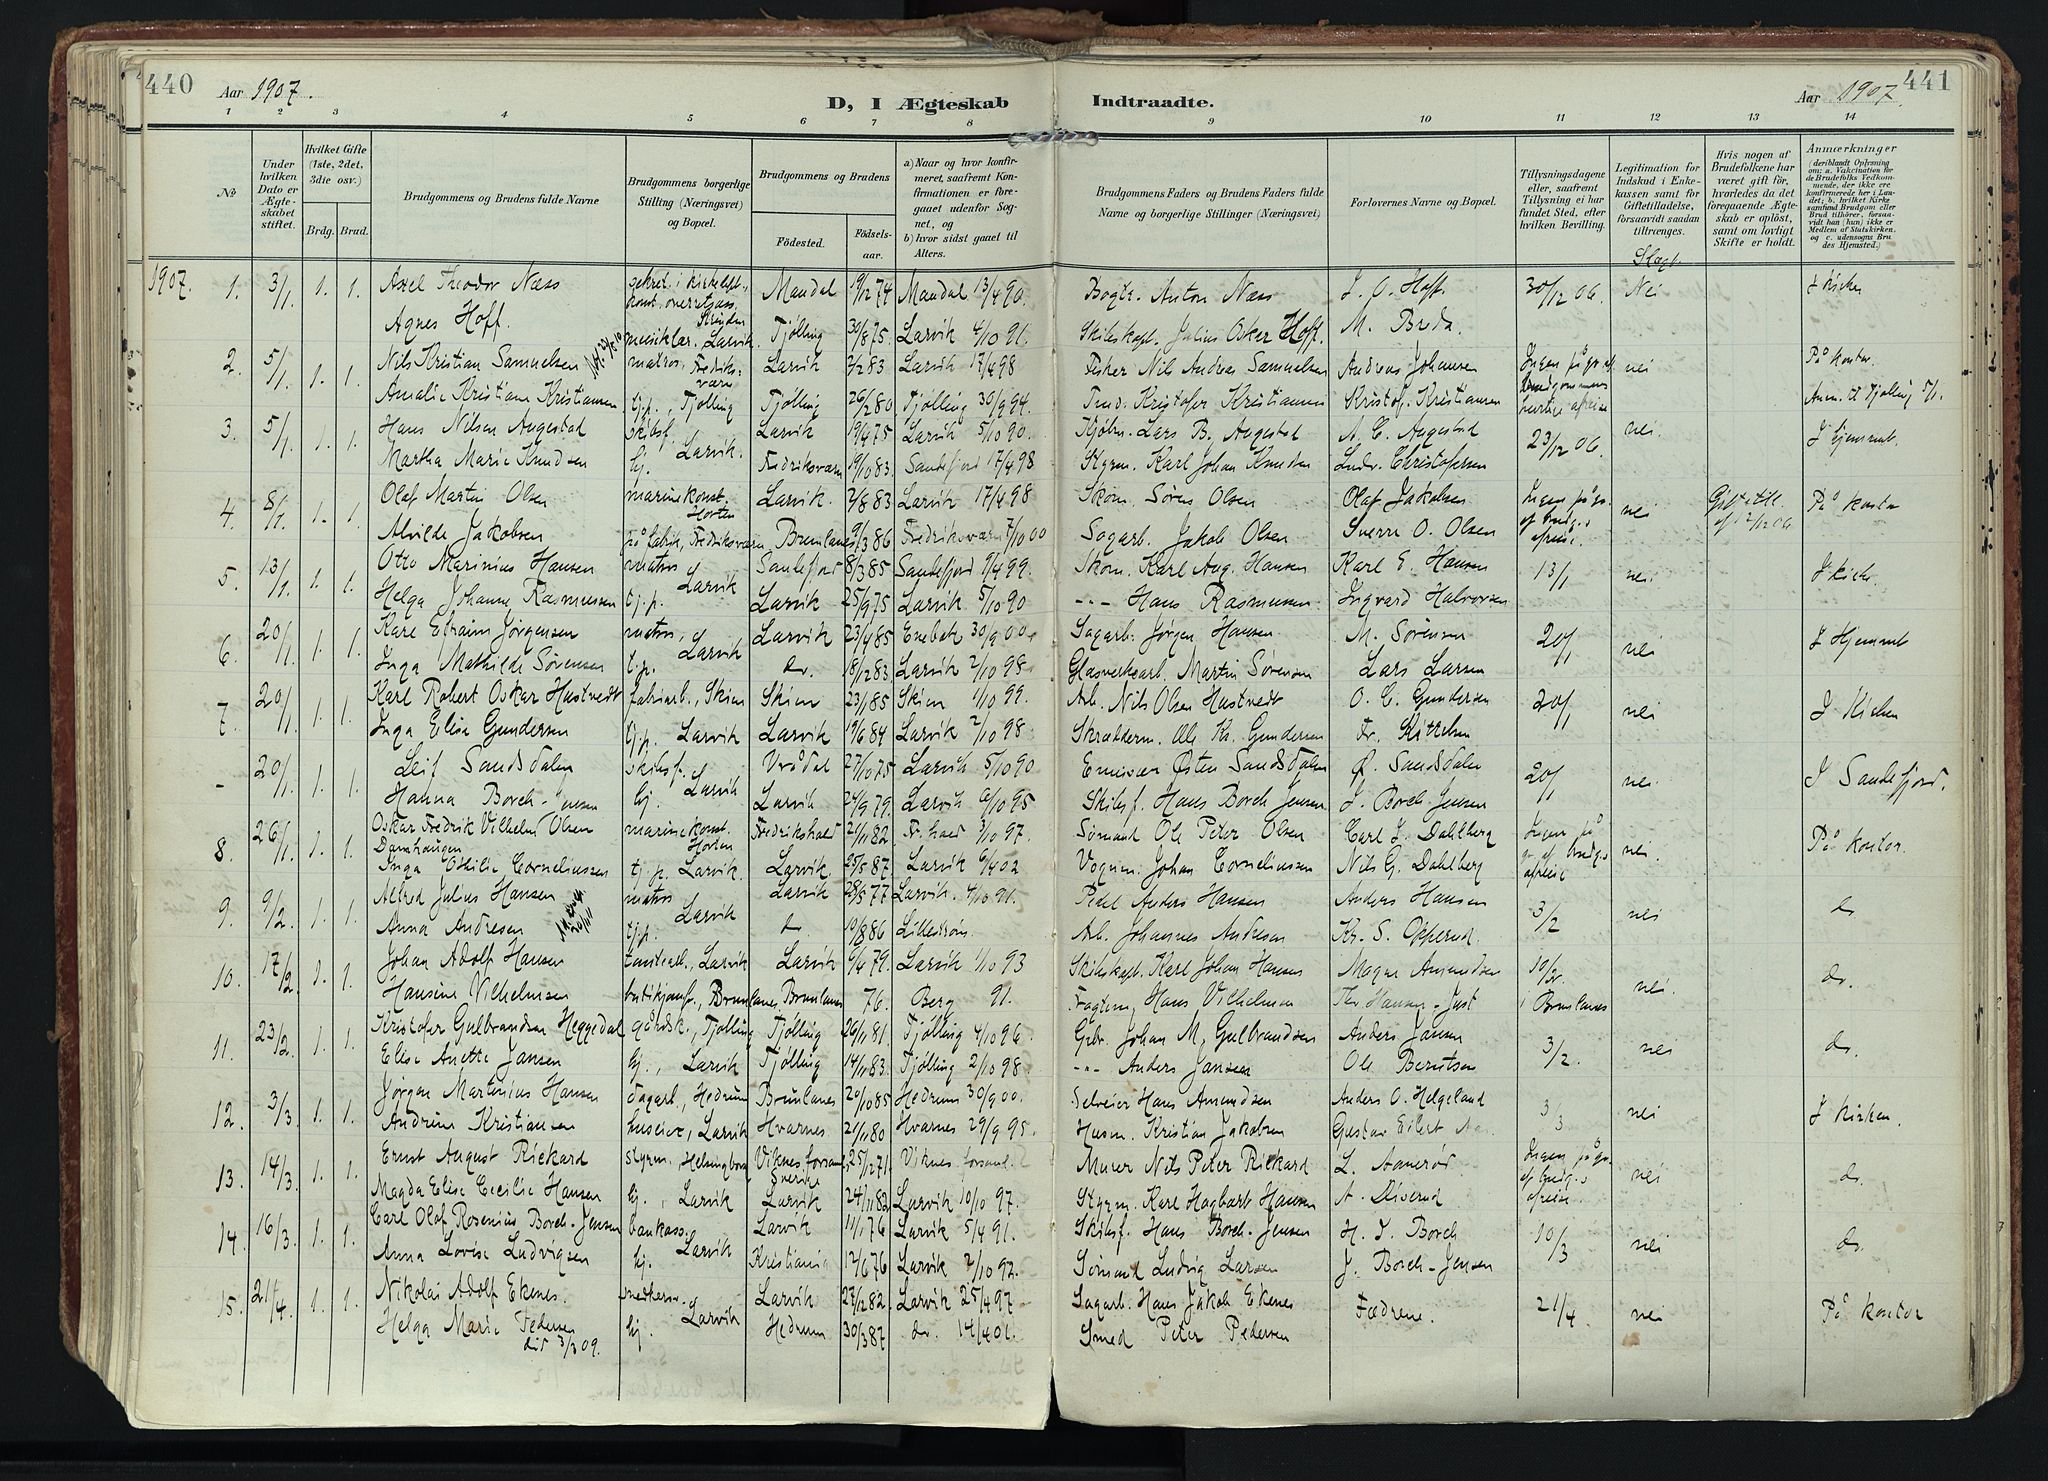 440
Aar 1907.
D, I Ægteskab
Indtraadte.
Aar 1907.
441
1 2 3 4 5 6 7 8 9 10 11 12 13 14
No
Under hvilken Dato er Ægteskabet stiftet.
Hvilket Gifte (1ste, 2det, 3die osv.)
Brdg. Brud.
Brudgommens og Brudens fulde Navne
Brudgommens borgerlige Stilling (Næringsvei) og Bopæl.
Brudgommens og Brudens
Födested.
Födselsaar.
a) Naar og hvor konfirmeret, saafremt Konfirmationen er foregaaet udenfor Sognet, og
b) hvor sidst gaaet til Alters.
Brudgommens Faders og Brudens Faders fulde Navne og borgerlige Stillinger (Næringsvei)
Forlovernes Navne og Bopæl.
Tillysningsdagene eller, saafremt Tillysning ei har fundet Sted, efter hvilken Bevilling.
Legitimation for Indskud i Enkekassen samt for Giftetilladelse, forsaavidt saadan tiltrænges.
Slægt.
Hvis nogen af Brudefolkene har været gift før, hvorledes da det foregaaende Ægteskab er oplöst, samt om lovligt Skifte er holdt.
Anmærkninger
(deriblandt Oplysning om: a. Vakcination for de Brudefolks Vedkommende, der ikke ere konfirmerede her i Landet; b. hvilket Kirkesamfund Brudgom eller Brud tilhörer, forsaavidt han (hun) ikke er Medlem af Statskirken, og c. udensogns Brudes Hjemsted.)
1907. 1. 3/1 1. 1. Axel Theodor Næss Mandal 19/12 74 Mandal 13/4 90. Bogtr. Anton Næss J. O. Hoff 30/12 06. Nei I kirken
Agnes Hoff. Tjølling 30/8 75. Larvik 4/10 91. Skibskapt. Julius Oskar Hoff. M. Breda
2. 5/1 1. 1. Nils Kristian Samuelsen matros, Fredriksværn Larvik 2/2 83 Larvik 17/4 98 Fisker Nils Andreas Samuelsen Andreas Johansen Ingen på gr. af brudgommens hurtige afreise nei På kontor.
Amalie Kristine Kristiansen tj.p., Tjølling Tjølling 26/2 80 Tjølling 30/9 94. Kristofer Kristiansen Kristof. Kristiansen Anm. til Tjølling 5/1.
3. 5/1 1. 1. Hans Nilsen Augestad skibsf. Larvik. Larvik 19/4 75 Larvik 5/10 90. Kjøbm. Lars B. Augestad A. C. Augestad 23/12 06. nei. I hjemmet
Martha Marie Knudsen hj. Fredriksværn 19/10 83. Sandefjord 17/4 98 Styrm. Karl Johan Knudsen Ludv. Christofersen
4. 8/1. 1. 1. Olaf Martin Olsen marinekonst. Horten Larvik. 2/8 83 Larvik 17/4 98 Skom. Søren Olsen Olaf Jakobsen Ingen på gr. af brudg.s afreise. nei På kontor
Alvilde Jakobsen på fabrik, Fredriksværn Brunlanes 9/3 86 Fredriksværn 7/10 00 Sagarb. Jakob Olsen Sverre O. Olsen
5. 13/1 1. 1. Otto Marinius Hansen matros Larvik Sandefjord 8/3 85 Sandefjord 9/4 99. Skom. Karl Aug. Hansen Karl E. Hansen 13/1 nei I kirke.
Helga Johanne Rasmussen tj.p. Larvik 25/9 75 Larvik 5/10 90 --- Hans Rasmussen Ingvard Halvorsen
6. 20/1 1. 1. Karl Efraim Jørgensen matros, Larvik Larvik 23/4 85 Enebak 30/9 00. Sagarb. Jørgen Hansen M. Sørensen 20/1 nei I Hjemmet
Inga Mathilde Sørensen tj.p. do. 18/12 83. Larvik 2/10 98. Glasverksarb. Martin Sørensen Lars Larsen
7. 20/1 1. 1. Karl Robert Oskar Hustvedt fabrarb., Skien Skien 23/1 85 Skien 1/10 99. Arb. Nils Olsen Hustvedt O. C. Gundersen 20/1 nei I Kirken
Inga Elise Gundersen tj.p. Larvik Larvik 19/6 84 Larvik 2/10 98. Skrædderm. Ole Kr. Gundersen Fr. Kittelsen
- 20/1 1. 1. Leif Sandsdalen skibsf. Larvik Vrådal 27/10 75 Larvik 5/10 90 Emissær Østen Sandsdalen Ø. Sandsdalen 20/1 nei I Sandefjord.
Hanna Borch-Jensen hj. Larvik 24/9 79. Larvik 6/10 95 Skibsf. Hans Borch Jensen J. Borch-Jensen
8. 26/1 1. 1. Oskar Fredrik Vilhelm Olsen marinekonst. Horten Fredrikshald 21/11 82. Fr.hald 3/10 97. Sømand Ole Peter Olsen Carl J. Dahlberg Ingen på gr. af brudg.s afreise nei. På kontor.
Damhaugen
Inga Othilie Corneliussen tj.p. Larvik. Larvik. 25/5 87. Larvik 6/4 02 Vognm. Johan Corneliussen Nils G. Dahlberg
9. 9/2 1. 1. Alfred Julius Hansen matros Larvik Larvik 28/5 77 Larvik. 4/10 91. Pedel Anders Hansen Anders Hansen 3/2 nei do
Anna Andresen tj.p. do 10/8 86 Lillestrøm. Arb. Johannes Andresen Kr. S. Opperud.
10. 17/2. 1. 1. Johan Adolf Hansen Larvik Larvik 6/4 79. Larvik 1/10 93 Skibskapt. Karl Johan Hansen Magnus Amundsen 10/2 nei. do.
Hansine Vilhelmsen butikjomf., Brunlanes, Brunlanes 76. Berg 91. Hans Vilhelmsen i Brunlanes
11. 23/2. 1. 1. Kristofer Gulbrandsen Heggedal gårdsk., Tjølling Tjølling 26/11 81. Tjølling 4/10 96. Gbr. Johan M. Gulbrandsen Anders Jansen 3/2. nei do.
Elise Anette Jansen hj., Larvik Tjølling 14/11 83. Tjølling 2/10 98. --- Anders Jansen Ole Berntsen
12. 3/3. 1. 1. Jørgen Martinius Hansen dagarb., Hedrum Brunlanes 20/10 85 Hedrum 30/9 00. Selveier Hans Amundsen Anders O. Helgeland 3/3 nei I kirken.
Andrine Kristiansen Larvik Hvarnes 21/11 80 Hvarnes 29/9 95. Husm. Kristian Jakobsen Gustav Eilert
13. 14/3. 1. 1. Ernst August Rickard styrm. Helsingborg Viknes forsaml., Sverike 25/12 71. Viknes forsaml. Murer Nils Peter Rickard L. Aamerød Ingen på gr. af brudg.s afreise. nei do.
Magda Elise Cecilie Hansen hj., Larvik Larvik 24/11 82 Larvik 10/10 97. Styrm. Karl Hagbart Hansen
14. 16/3. 1. 1. Carl Olaf Rosenius Borch-Jensen bankass. Larvik Larvik 11/1 76 Larvik 5/4 91. Skibsf. Hans Borch-Jensen H. J. Borch 10/3 nei do.
Anna Lovise Ludvigsen hj. Kristiania 12/6 76 Larvik 2/10 92. Sømand Ludvig Larsen J. Borch-Jensen
15. 21/4. 1. 1. Nikolai Adolf Ekenes. snedkersv. Larvik Larvik 27/12 82. Larvik 25/4 97 Sagarb. Hans Jakob Ekenes Fædrene. 21/4 nei På kontor
Helga Marie Pedersen hj. Hedrum 30/3 87 do. 14/4 01. Smed Peter Pedersen
dir 3/3 09.